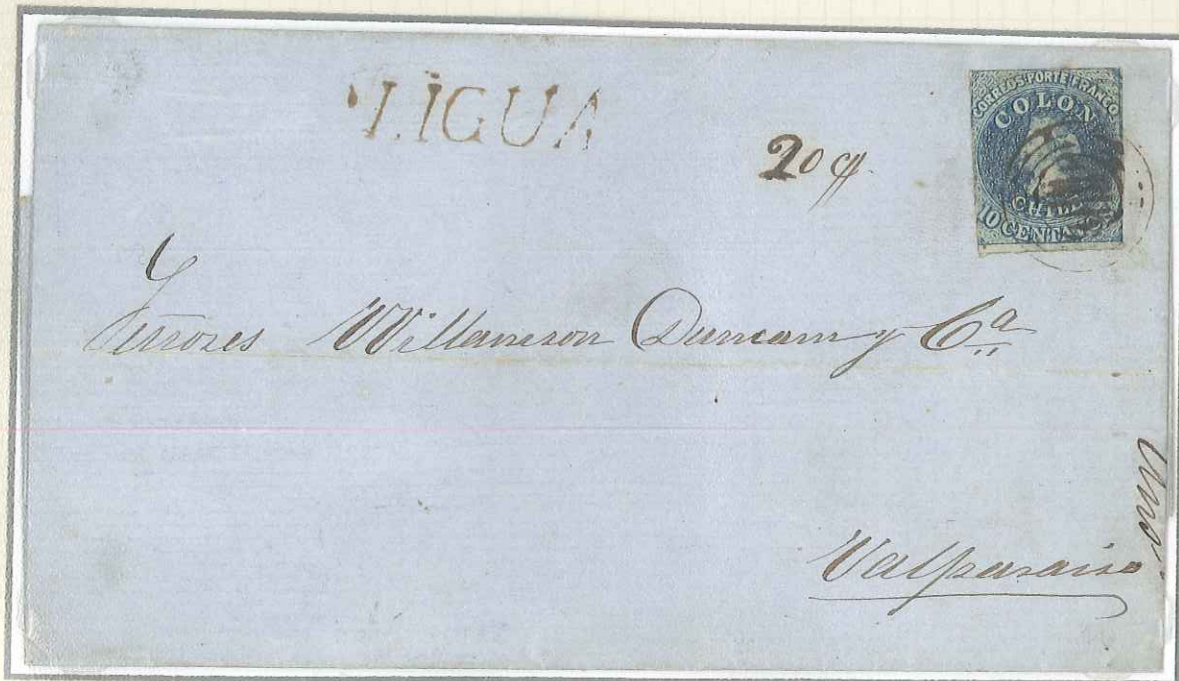 LIGUA
CORREOS PORTE FRANCO
COLON
CHILE
10 CENTAVOS
20
Señores Williamson Duncan y Cª
Valparaiso